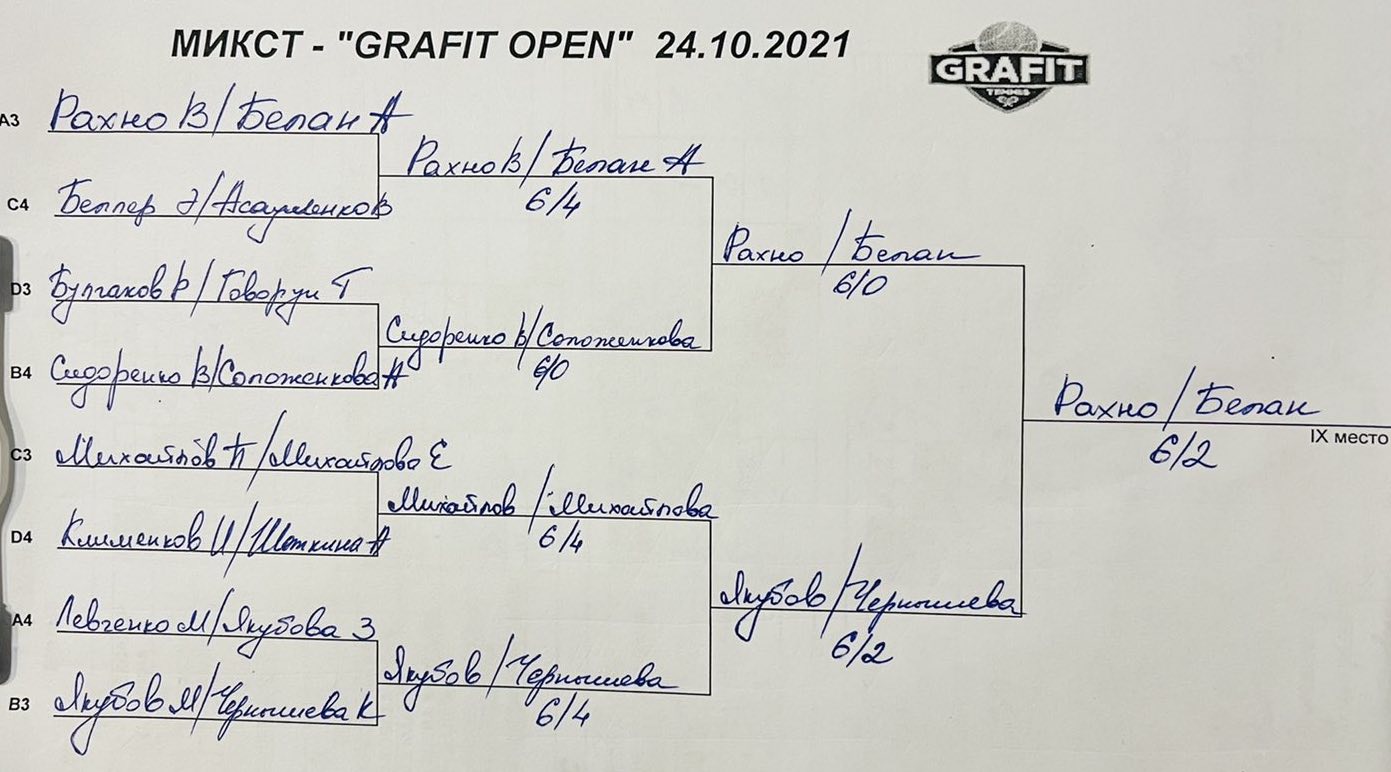 МИКСТ - "GRAFIT OPEN" 24.10.2021
GRAFIT
ТЕННИС
A3 Рахно В/Белан А
Рахно В/Белан А
6/4
C4 Беллер Э/Асауленко В
Рахно/Белан
6/0
D3 Булгаков В/Говорун Т
Сидоренко В/Соложенкова
6/0
B4 Сидоренко В/Соложенкова А
Рахно/Белан
IX место
6/2
C3 Михайлов П/Михайлова Е
Михайлов/Михайлова
6/4
D4 Клименков И/Щеткина А
Якубов/Чернышева
6/2
A4 Левченко М/Якубова З
Якубов/Чернышева
6/4
B3 Якубов М/Чернышева К